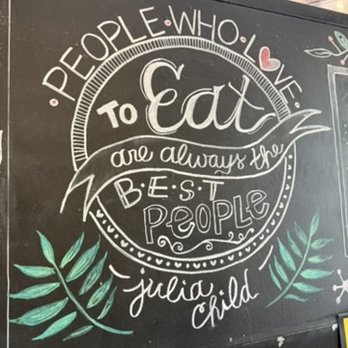 PEOPLE WHO LOVE
TO Eat
are always the
B·E·S·T
PEOPLE
julia
child